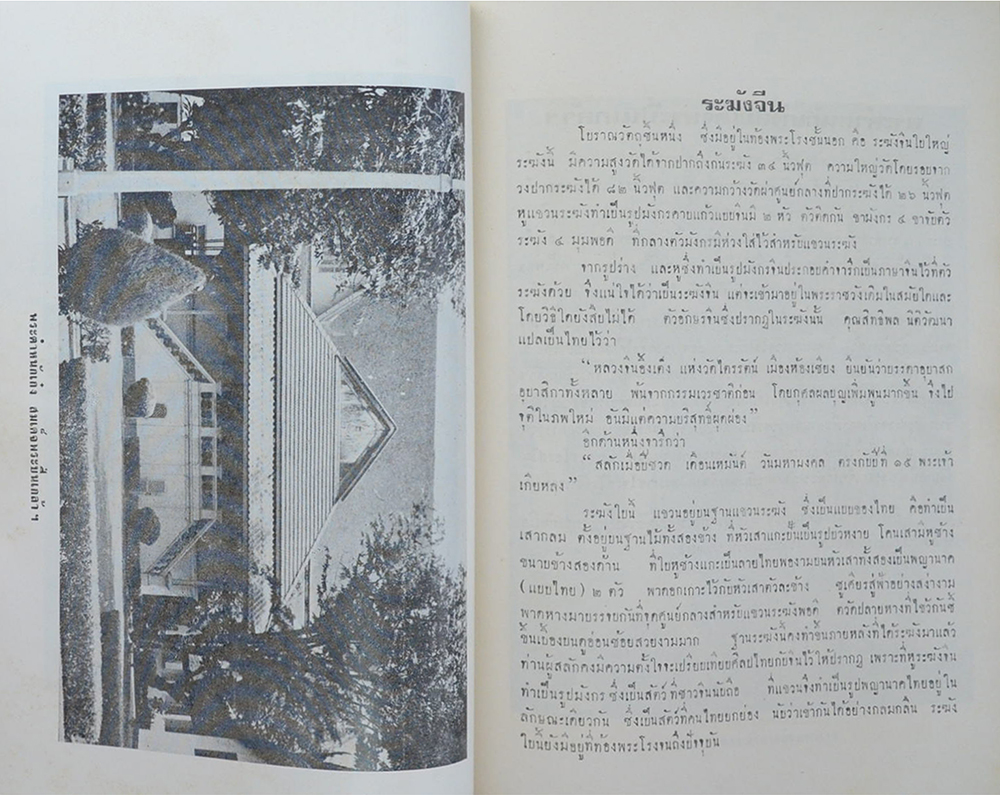 พระตำหนักเก๋ง สมเด็จพระปิ่นเกล้าฯ
ระฆังจีน
โบราณวัตถุชิ้นหนึ่ง ซึ่งมีอยู่ในท้องพระโรงชั้นนอก คือ ระฆังจีนใบใหญ่
ระฆังนี้ มีความสูงวัดได้จากปากถึงก้นระฆัง ๓๔ นิ้วฟุต ความใหญ่วัดโดยรอบจาก
วงปากระฆังได้ ๘๒ นิ้วฟุต และความกว้างวัดผ่าศูนย์กลางที่ปากระฆังได้ ๒๖ นิ้วฟุต
หูแขวนระฆังทำเป็นรูปมังกรคาบแก้วแบบจีนมี ๒ หัว ตัวติดกัน ขามังกร ๔ ขารับตัว
ระฆัง ๔ มุมพอดี ที่กลางตัวมังกรมีห่วงใส่ไว้สำหรับแขวนระฆัง
จากรูปร่าง และหูซึ่งทำเป็นรูปมังกรจีนประกอบคำจารึกเป็นภาษาจีนไว้ที่ตัว
ระฆังด้วย จึงแน่ใจได้ว่าเป็นระฆังจีน แต่จะเข้ามาอยู่ในพระราชวังเดิมในสมัยใดและ
โดยวิธีใดยังสืบไม่ได้ ตัวอักษรจีนซึ่งปรากฏในระฆังนั้น คุณสิทธิพล นิติวัฒนา
แปลเป็นไทยไว้ว่า
“หลวงจีนฮ้งเต็ง แห่งวัดไตรรัตน์ เมืองห้องเซียง ยืนยันว่าบรรดาอุบาสก
อุบาสิกาทั้งหลาย พ้นจากกรรมเวรชาติก่อน โดยกุศลผลบุญเพิ่มพูนมากขึ้น จึงไป
จุติในภพใหม่ อันมีแต่ความบริสุทธิ์ผุดผ่อง”
อีกด้านหนึ่งจารึกว่า
“สลักเมื่อปีชวด เดือนเหมันต์ วันมหามงคล ตรงกับปีที่ ๑๕ พระเจ้า
เกียหลง”
ระฆังใบนี้ แขวนอยู่บนฐานแขวนระฆัง ซึ่งเป็นแบบของไทย คือทำเป็น
เสากลม ตั้งอยู่บนฐานไม้ทั้งสองข้าง ที่หัวเสาแกะปั้นเป็นรูปบัวหงาย โคนเสามีหูช้าง
ขนาบข้างสองด้าน ที่ใบหูช้างแกะเป็นลายไทยพองามบนหัวเสาทั้งสองเป็นพญานาค
(แบบไทย) ๒ ตัว พาดอกเกาะไว้กับหัวเสาตัวละข้าง ชูเศียรสู่ฟ้าอย่างสง่างาม
พาดหางมาบรรจบกันที่จุดศูนย์กลางสำหรับแขวนระฆังพอดี ตวัดปลายหางที่ไขว้กันชี้
ขึ้นเบื้องบนดูอ่อนช้อยสวยงามมาก ฐานระฆังนี้คงทำขึ้นภายหลังที่ได้ระฆังมาแล้ว
ท่านผู้สลักคงมีความตั้งใจจะเปรียบเทียบศิลปไทยกับจีนไว้ให้ปรากฏ เพราะที่หูระฆังจีน
ทำเป็นรูปมังกร ซึ่งเป็นสัตว์ที่ชาวจีนนับถือ ที่แขวนจึงทำเป็นรูปพญานาคไทยอยู่ใน
ลักษณะเดียวกัน ซึ่งเป็นสัตว์ที่คนไทยยกย่อง นับว่าเข้ากันได้อย่างกลมกลืน ระฆัง
ใบนี้ยังมีอยู่ที่ท้องพระโรงจนถึงปัจจุบัน